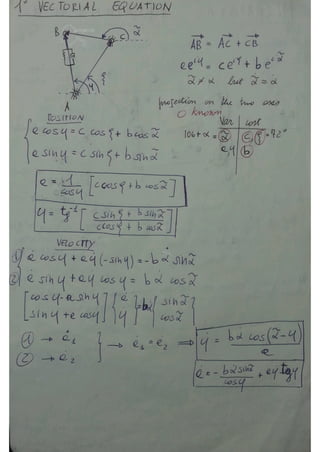 1° VECTORIAL EQUATION
B
C
A
AB = AC + CB
e e^iφ = c e^iξ + b e^iα̃
α̃ ≠ α but α̃̇ = α̇
projection on the two axes
○ known
Var | cost
106+α = α̃ | c, ξ = 92°
e φ | b
POSITION
e cosφ = c cosξ + b cosα̃
e sinφ = c sinξ + b sinα̃
e = 1/cosφ [c cosξ + b cosα̃]
φ = tg⁻¹ [c sinξ + b sinα̃ / c cosξ + b cosα̃]
VELOCITY
1) ė cosφ + eφ̇(-sinφ) = -bα̇ sinα̃
2) ė sinφ + eφ̇ cosφ = bα̇ cosα̃
[cosφ -e sinφ
sinφ +e cosφ] {ė φ̇} = bα̇ {sinα̃ cosα̃}
① → ė₁
② → ė₂
→ ė₁ = ė₂ ⟹ φ̇ = bα̇ cos(α̃-φ) / e
ė = - bα̇ sinα̃ / cosφ + eφ̇ tgφ